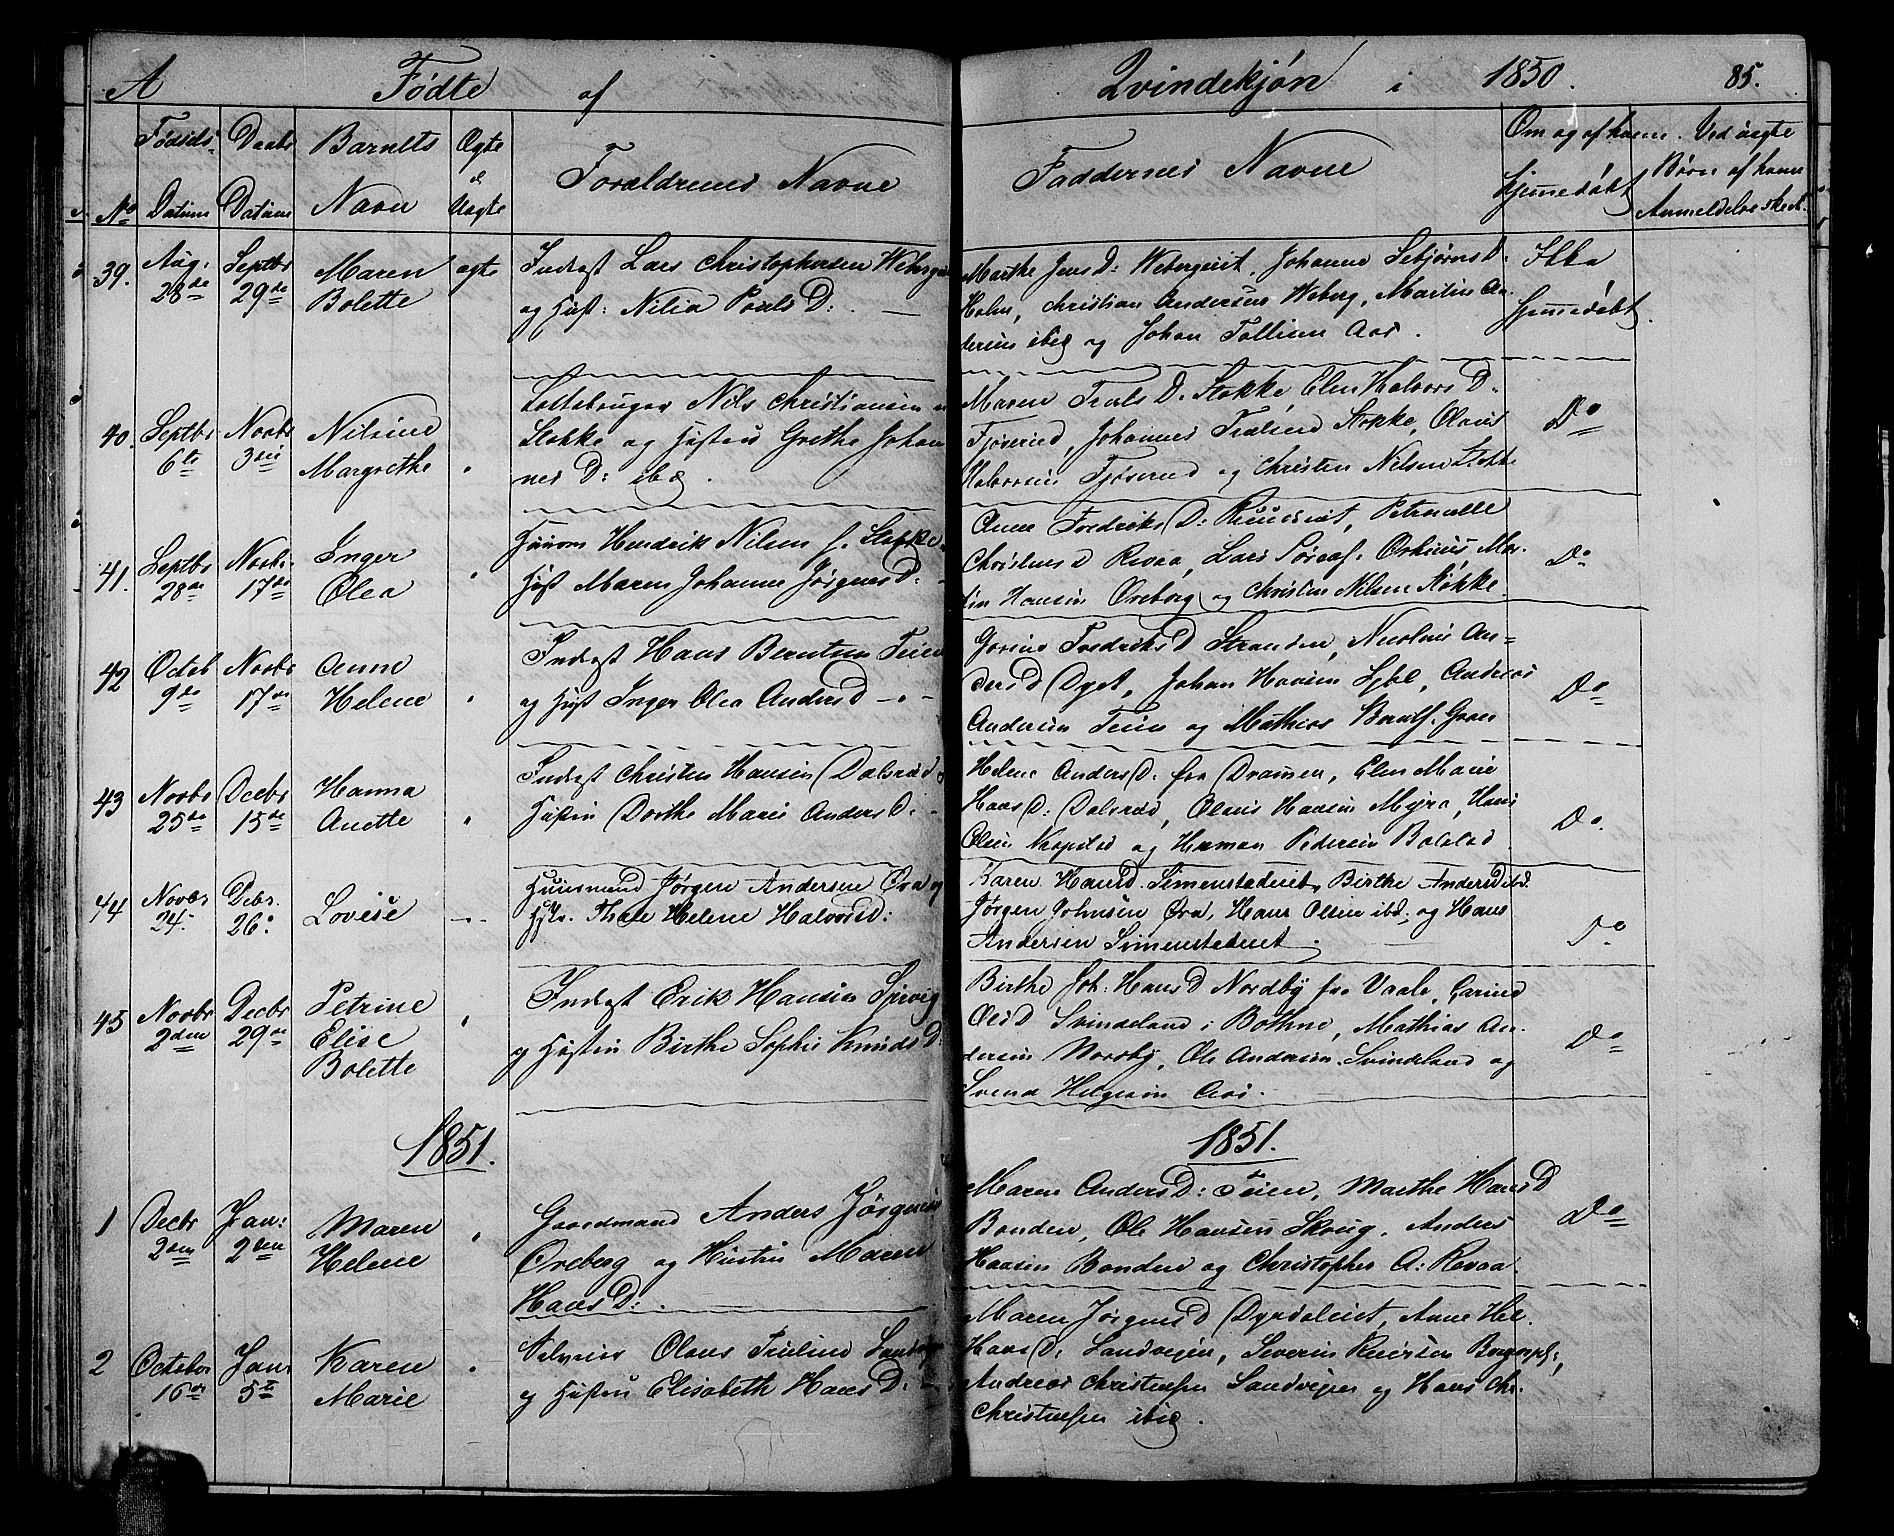 A Fødte af Qvindekjøn i 1850. 85.
No Fødsels Datum Daabs Datum Barnets Navn Ægte & Uægte Forældrenes Navne Faddernes Navne Om og af hvem Hjemmedøbt Ved uægte Børn af hvem Anmeldelse skeet.
39. Aug: 28de Septbr 29de Maren Bolette ægte
Inderst Lars Christophersen
og Hust: Nilia Pouls D:
Marthe Jens D: Johanne
Holm, Christian Andersen Weberg, Martin An-
dersen ibid og Johan Tollisen Aas.
Ikke Hjemmedøbt.
40. Septbr 6te Novbr 3die Nilsine Margrethe "
Nils Christiansen
Stokke og Hustru Grethe Johan
nes D: ibd.
Maren Truls D. Stokke, Elen Halvors D.
Fjøserud, Johannes Trulsen Stokke, Olaus
Halvorsen Fjøserud og Christen Nilsen Stokke
Do
41. Septbr 28de Novbr. 17de Inger Olea "
Huusm Hendrik Nilsen f. Stokke
Hust Maren Johanne Jørgens D:
Anne Fredriks D: Petronelle
Christens D Revaa, Lars
tin Hansen Øreberg og Christen Nilsen Støkke.
Do
42 Octob 9de Novbr 17de Anne Helene "
Inderst Hans Berntsen Teien
og Hust Inger Olea Anders D
Fredriks D Stranden, Nicoline An-
ders D Johan Hansen Andreas
Andersen Teien og Mathias
Do
43 Novbr 25de Decbr 15de Hanna Anette "
Inderst Christen Hansen Dalsrød
Hustru Dorthe Marie Anders D:
Helene Anders D. fra Dramen, Elen Marie
Hans D: Dalsrød, Olaus Hansen Myra, Hans
Olsen Kopstad og Herman Pedersen Bolstad
Do.
44 Novbr 24. Debr. 26. Lovise
Huusmand Jørgen Andersen Øra og
Hstr. Thale Helene Halvorsd:
Karen Hansd. Simenstaderiet, Birthe Andersd ibd.
Jørgen Johnsen Øra, Hans Olsen ibd. og Hans
Andersen Simenstaderiet.
Do
45 Novbr 2den Decbr 29de Petrine Elise Bolette "
Inderst Erik Hansen
og Hustru Birthe Sophie Knuds D:
Birthe Joh: Hans D Nordby fra Vaale,
Ols D Svindeland i Bothne, Mathias An-
dersen Nordby, Ole Andersen Svindeland og
Svend Helgesen Aas.
Do
1851. 1851.
1 Decbr 2den Jan: 2den Maren Helene "
Gaardmand Anders Jørgensen
Øreberg og Hustru Maren
Hans D:
Maren Anders D: Teien, Marthe Hans D
Bonden, Ole Hansen Skoug, Anders
Hansen Bonden og Christopher A: Revaa.
Do
2 October 16de Jan 5te Karen Marie "
Selveier Olaus Trulsen
og Hustru Elisabeth Hans D:
Maren Jørgens D Anne Hel.
Hans D. Sandvejen, Severin
Andreas Christensen Sandvejen og Hans Chr.
Christensen ibid.